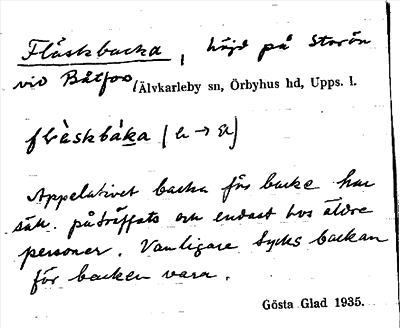 Fläskbacka, höjd på Storön
vid Båtfors, Älvkarleby sn, Örbyhus hd, Upps. l.
Appelativet backa för backe har
säk. påträffats och endast hos äldre
personer. Vanligare tycks backan
för backen vara.
Gösta Glad 1935.